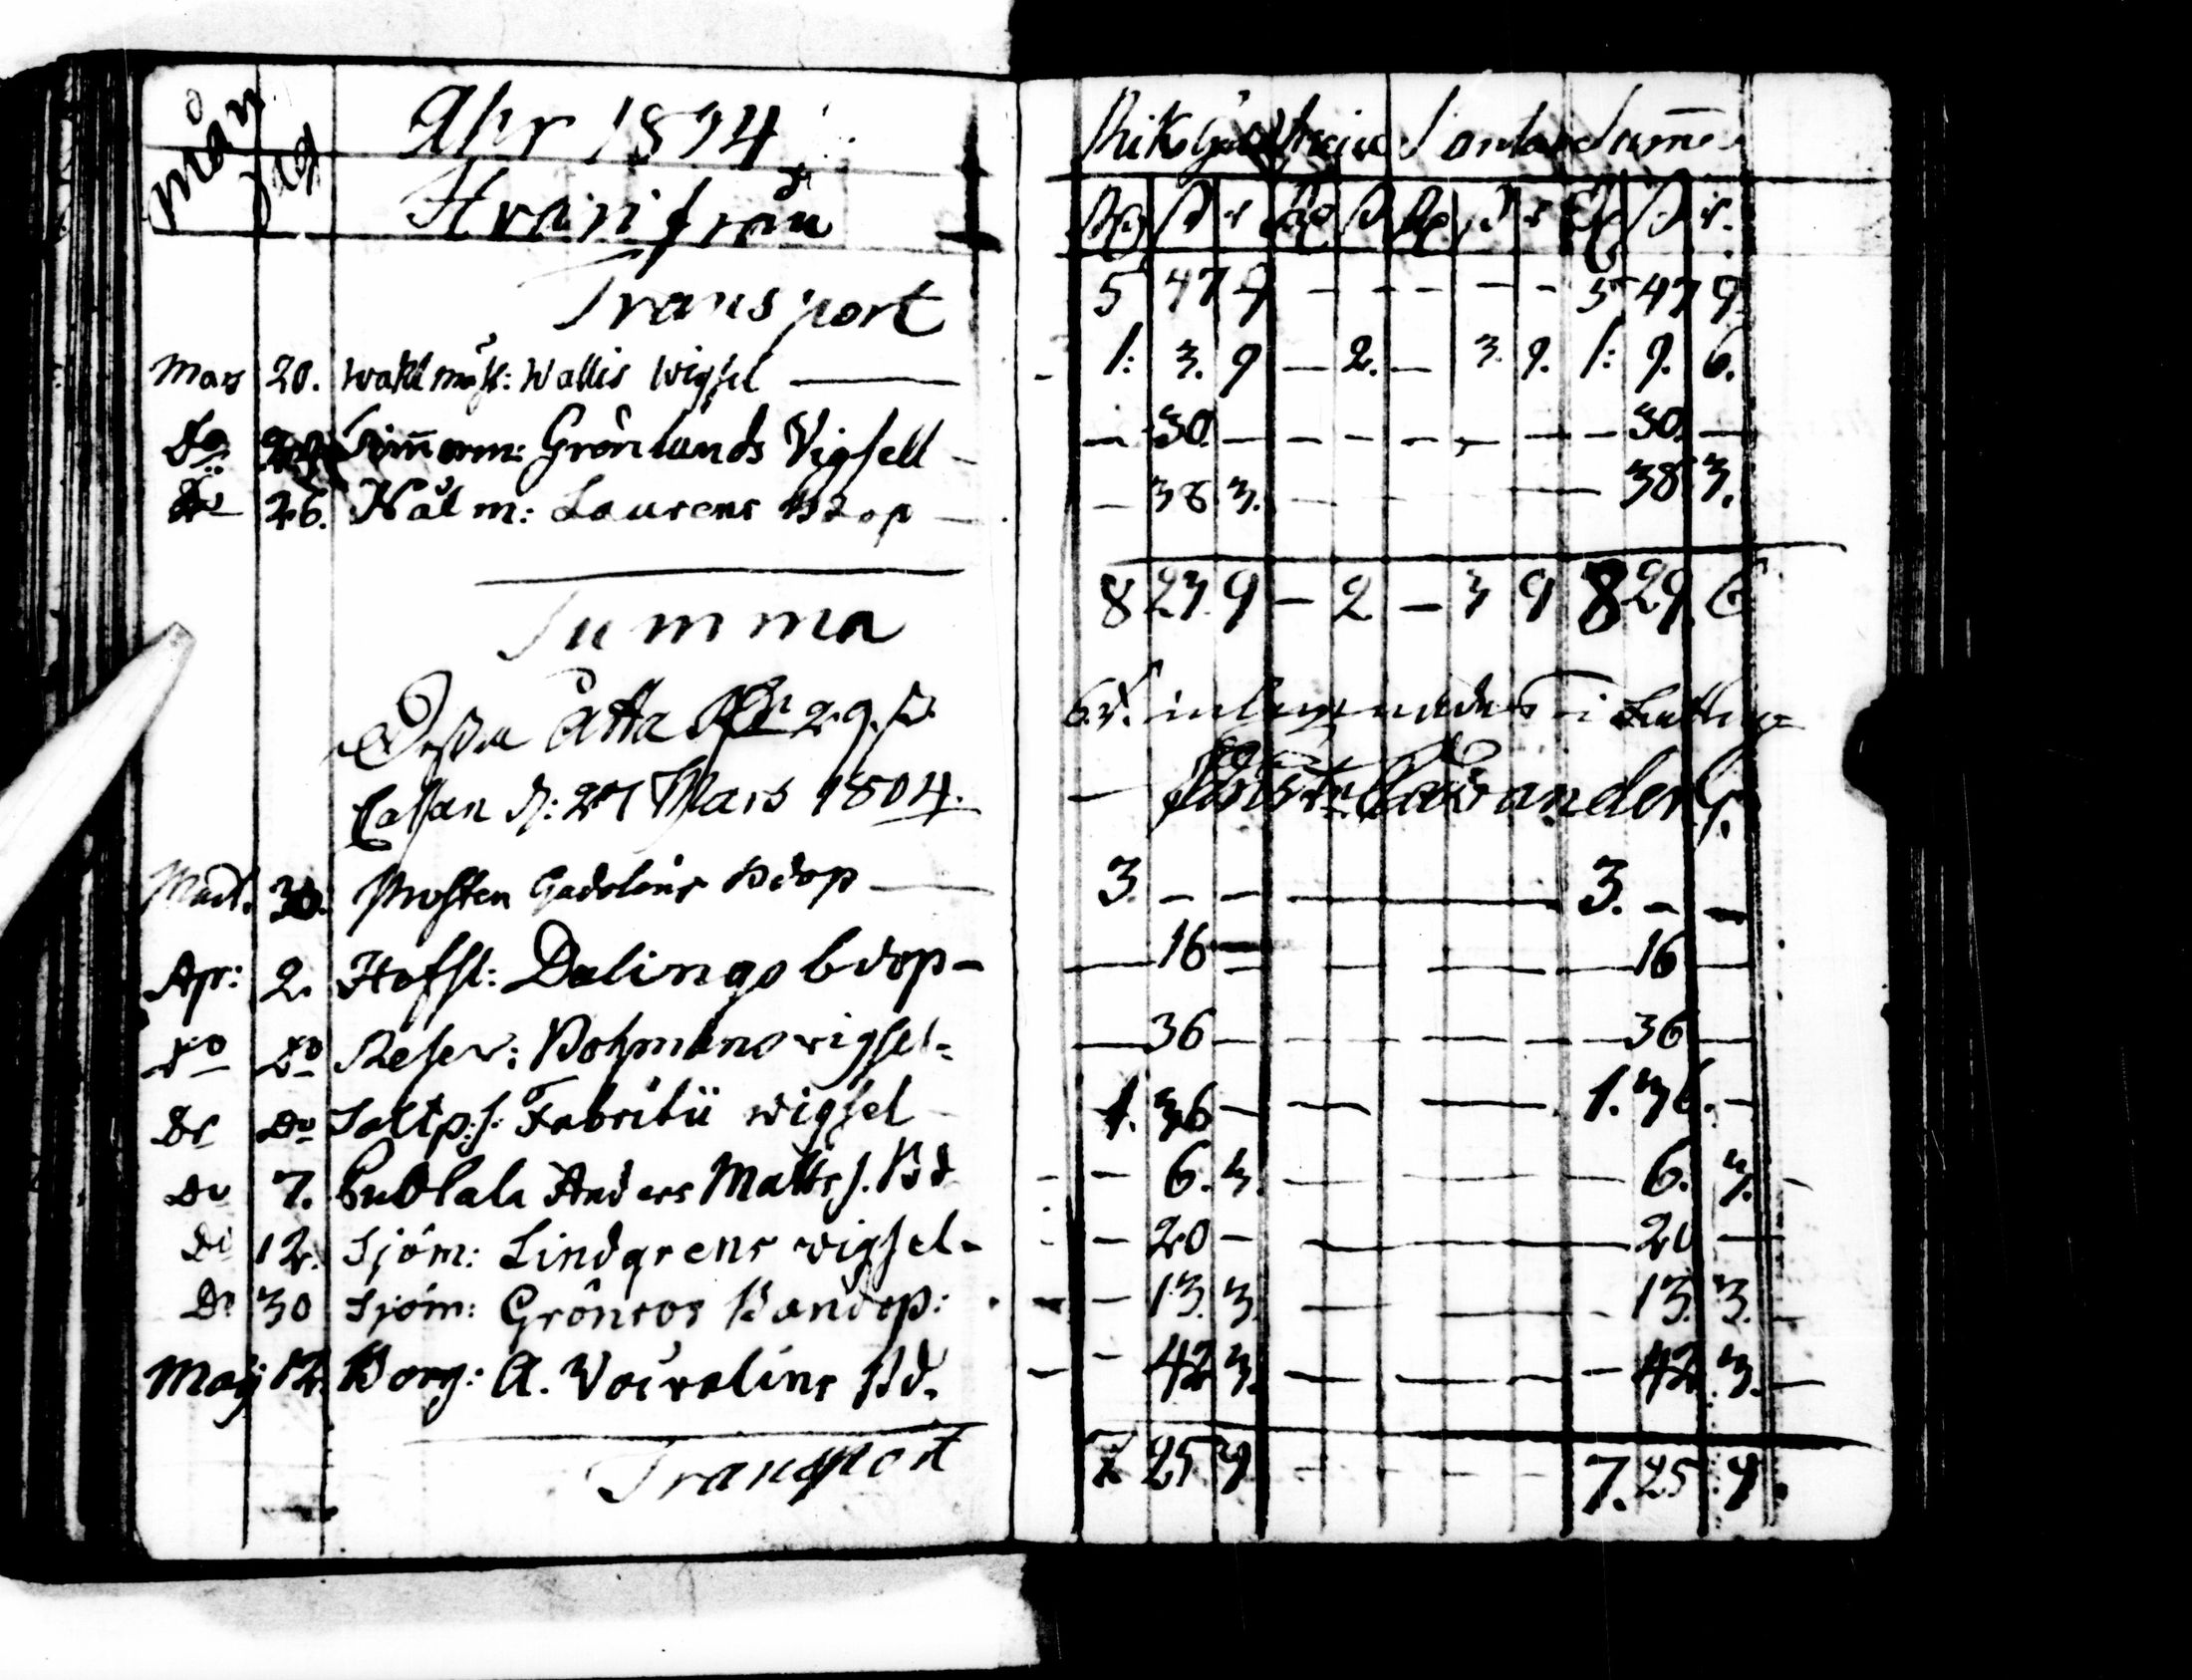 mån dag Ahr 1804 Riksgäld Sonder Summe
Hvarifrån Rd S r Rd S Rd S r Rd S r.
Transport 5 47 9 - - - - - 5 47 9
Mars 20. Waktmäst: Wallis Wigsel — 1: 3. 9 — 2. — 3. 9. 1: 9. 6.
Do Timerm: Grönlunds Vigsell — 30. — — — — — — — 30. —
Do 26. Hålm: Laurens Bdop — 38 3. — — 38 3.
Summa 8 23. 9 — 2 — 3 9 8 29. 6
Dessa Åtta Rd 29. S 6 r. i
Cassan d: 27 Mars 1804.
Mart. 30. Prosten Gadolins Bdop — 3. — — — 3. — —
Apr: 2. Hofsl: Dalings bdop — 16 — — — — — 16 —
Do Do Refer: Bohmans vigsel — 36 — — — — — 36 —
Do Do Saltp:s: Fabritii wigsel 1. 36 — — — 1. 36. —
Do 7. Anders Matts s. Bd — 6. 3. — — — 6. 3.
Do 12. Sjöm: Lindgrens vigsel — — 20 — — 20 —
Do 30 Sjöm: Grönroos Barndop: — 13. 3. — — — 13. 3.
Maj 12. Borg: A. Bd. — 42 3. — — — — 42. 3.
Transport 7 25 9 — — — — 7. 25 9.